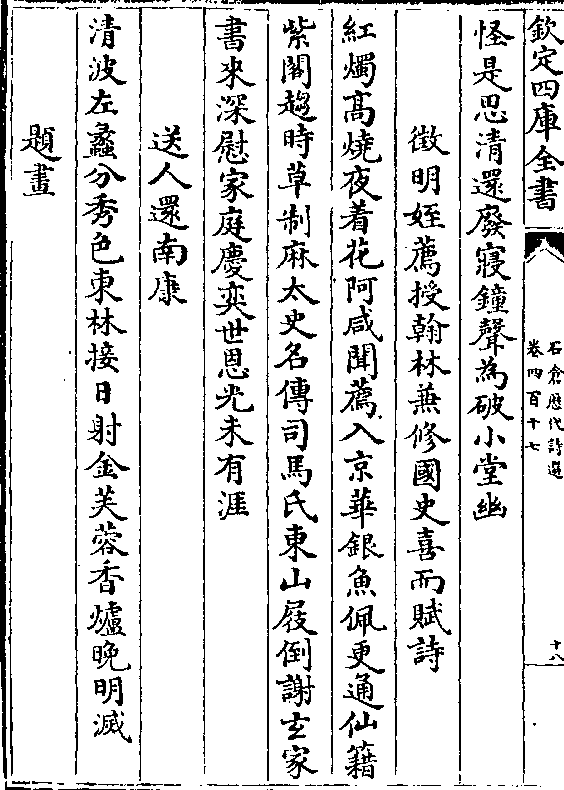 欽定四庫全書
石倉歷代詩選
卷四百十七
十八
怪是思清還廢寢鐘聲為破小堂幽
徵明姪薦授翰林兼修國史喜而賦詩
紅燭髙燒夜着花阿咸聞薦入京華銀魚佩更通仙籍
紫閣趨時草制麻太史名傳司馬氏東山屐倒謝玄家
書來深慰家庭慶奕世恩光未有涯
送人還南康
清波左蠡分秀色東林接日射金芙蓉香爐晩明滅
題畫